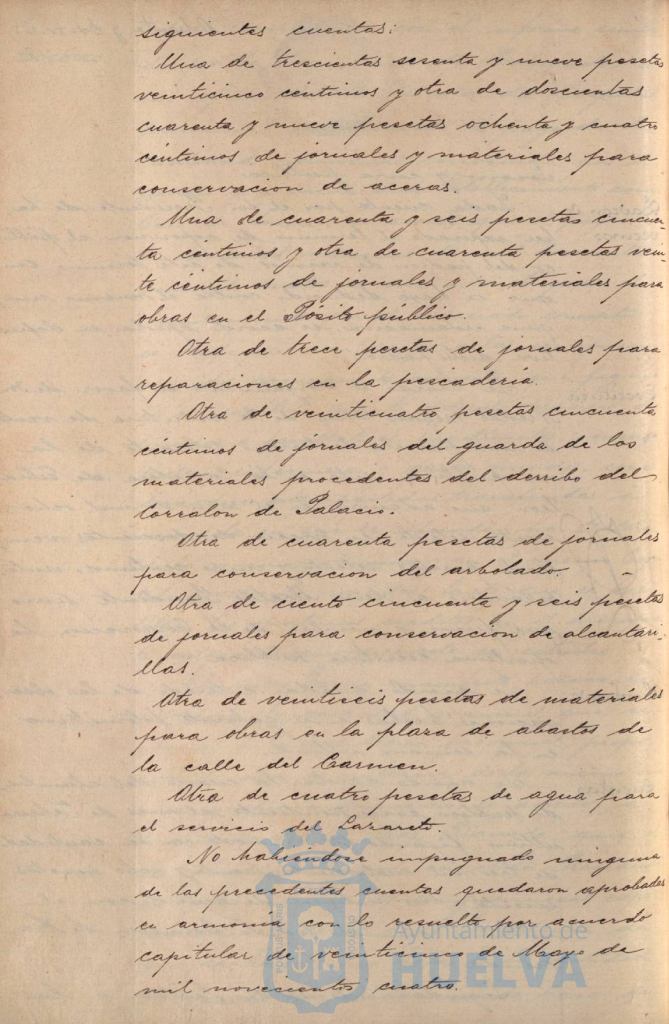 siguientes cuentas:
Una de trescientas sesenta y nueve pesetas
veinticinco céntimos y otra de doscientas
cuarenta y nueve pesetas ochenta y cuatro
céntimos de jornales y materiales para
conservacion de aceras.
Una de cuarenta y seis pesetas cincuen-
ta céntimos y otra de cuarenta pesetas vein-
te céntimos de jornales y materiales para
obras en el Pósito público.
Otra de trece pesetas de jornales para
reparaciones en la pescadería.
Otra de veinticuatro pesetas cincuenta
céntimos de jornales del guarda de los
materiales procedentes del derribo del
Corralon de Palacio.
Otra de cuarenta pesetas de jornales
para conservacion del arbolado.
Otra de ciento cincuenta y seis pesetas
de jornales para conservacion de alcantari-
llas.
Otra de veintiseis pesetas de materiales
para obras en la plaza de abastos de
la calle del Carmen.
Otra de cuatro pesetas de agua para
el servicio del Lazareto.
No habiéndose impugnado ninguna
de las precedentes cuentas quedaron aprobadas
en armonía con lo resuelto por acuerdo
capitular de veinticinco de Mayo de
mil novecientos cuatro.
Ayuntamiento de
HUELVA